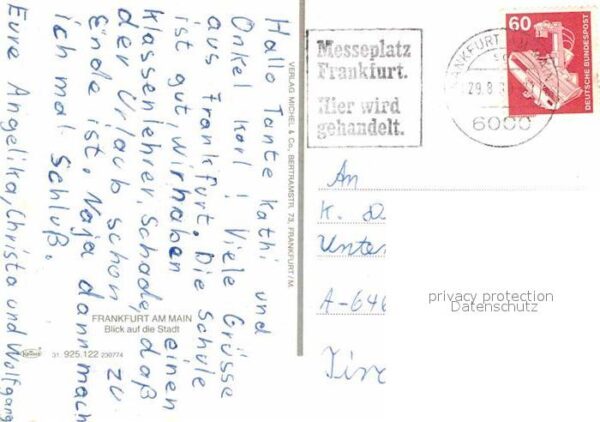 Hallo Tante Kathi und
Onkel Karl! Viele Grüsse
aus Frankfurt. Die Schule
ist gut, wir haben einen
Klassenlehrer. Schade, daß
der Urlaub schon zu
Ende ist. Naja dann mach
ich mal Schluß.
Eure Angelika, Christa und Wolfgang
VERLAG MICHEL & Co., BERTRAMSTR. 73, FRANKFURT/M.
FRANKFURT AM MAIN
Blick auf die Stadt
Krüger
31. 925.122 230774
Messeplatz
Frankfurt.
Hier wird
gehandelt.
29.8.
6000
60
DEUTSCHE BUNDESPOST
An
K. D
Unter
A-646
privacy protection
Datenschutz